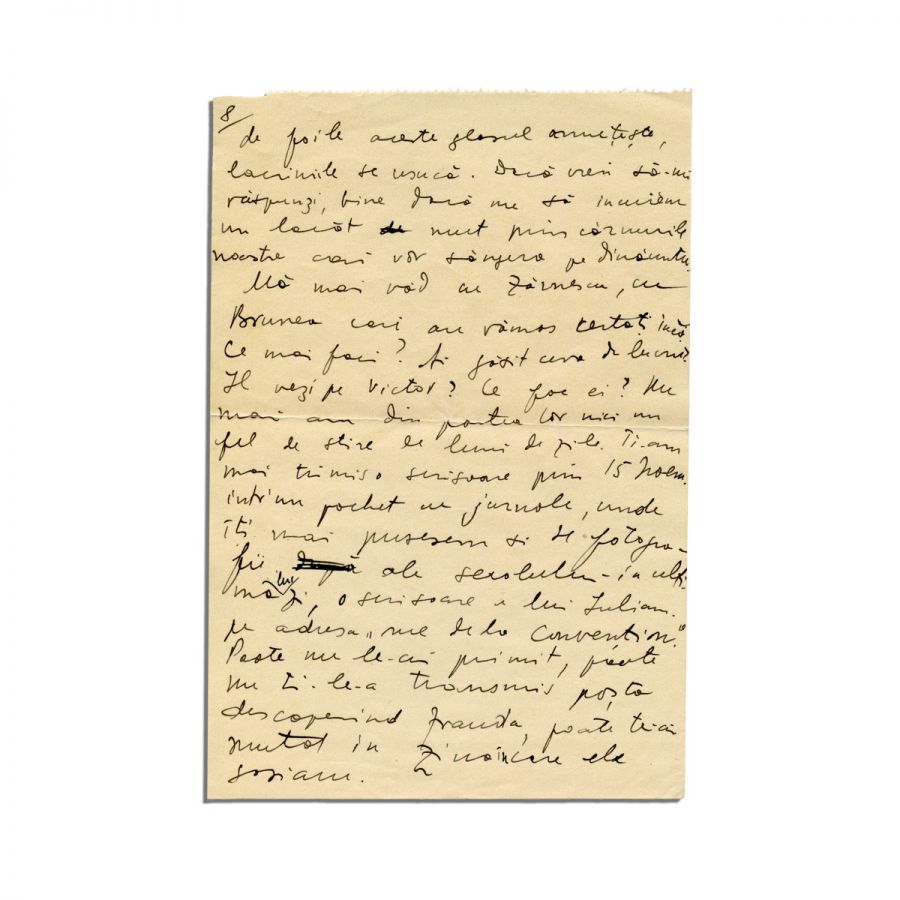 8/
de foile aceste glasul amuțește,
lacrimile se usucă. Dacă vrei să-mi
răspunzi, bine dacă nu să incuiem
un lacăt mut prin cărnurile
noastre cari vor sângera pe dinăuntru.
Mă mai văd cu Zărnescu, cu
Brunea cari au rămas certați încă.
Ce mai faci? Ai găsit ceva de lucru?
Il vezi pe Victor? Ce fac ei? Nu
mai am din partea lor nici un
fel de stire de luni de zile. Ti-am
mai trimis o scrisoare prin 15 Noem.
intr'un pachet cu jurnale, unde
iti mai pusesem si de fotogra-
fii ale sexolului - in ulti-
ma lui zi, o scrisoare a lui Iulian.
pe adresa „rue de la Convention."
Poate nu le-ai primit, poate
nu ti-le-a transmis poșta
descoperind frauda, poate te-ai
mutat in ele
soseau.